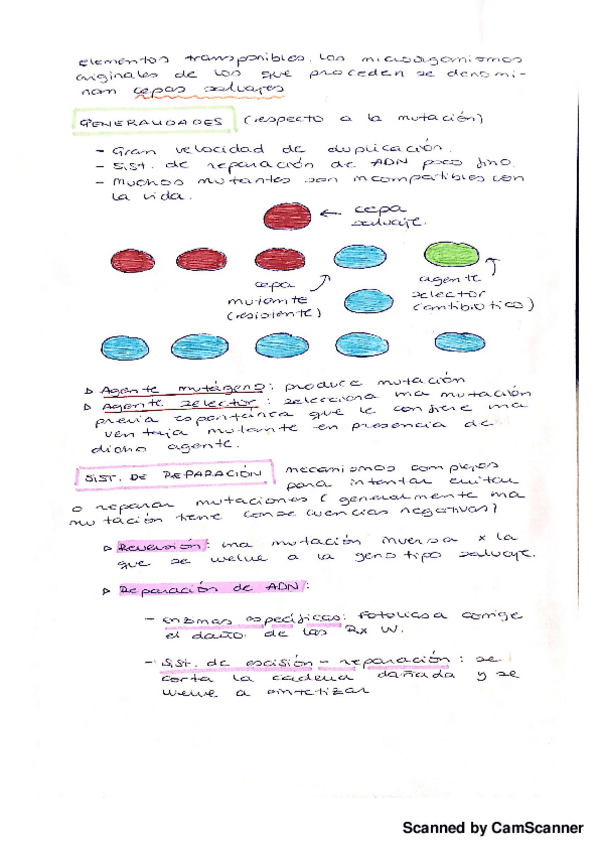 elementos transponibles. Los microorganismos
originales de los que proceden se denomi-
nan cepas salvajes
GENERALIDADES (respecto a la mutación)
- Gran velocidad de duplicación.
- Sist. de reparación de ADN poco fino.
- Muchos mutantes son incompatibles con
la vida.
← cepa
salvaje.
cepa
mutante
(resistente)
agente
selector
(antibiótico)
▷ Agente mutágeno: produce mutación
▷ Agente selector: selecciona una mutación
previa espontánea que le confiere una
ventaja mutante en presencia de
dicho agente.
SIST. DE REPARACIÓN mecanismos complejos
para intentar evitar
o reparar mutaciones (generalmente una
mutación tiene consecuencias negativas)
▷ Reversión: una mutación inversa x la
que se vuelve a la genotipo salvaje.
▷ Reparación de ADN:
- enzimas específicas: Fotoliasa corrige
el daño de las Rx UV.
- Sist. de escisión - reparación: se
corta la cadena dañada y se
vuelve a sintetizar
Scanned by CamScanner